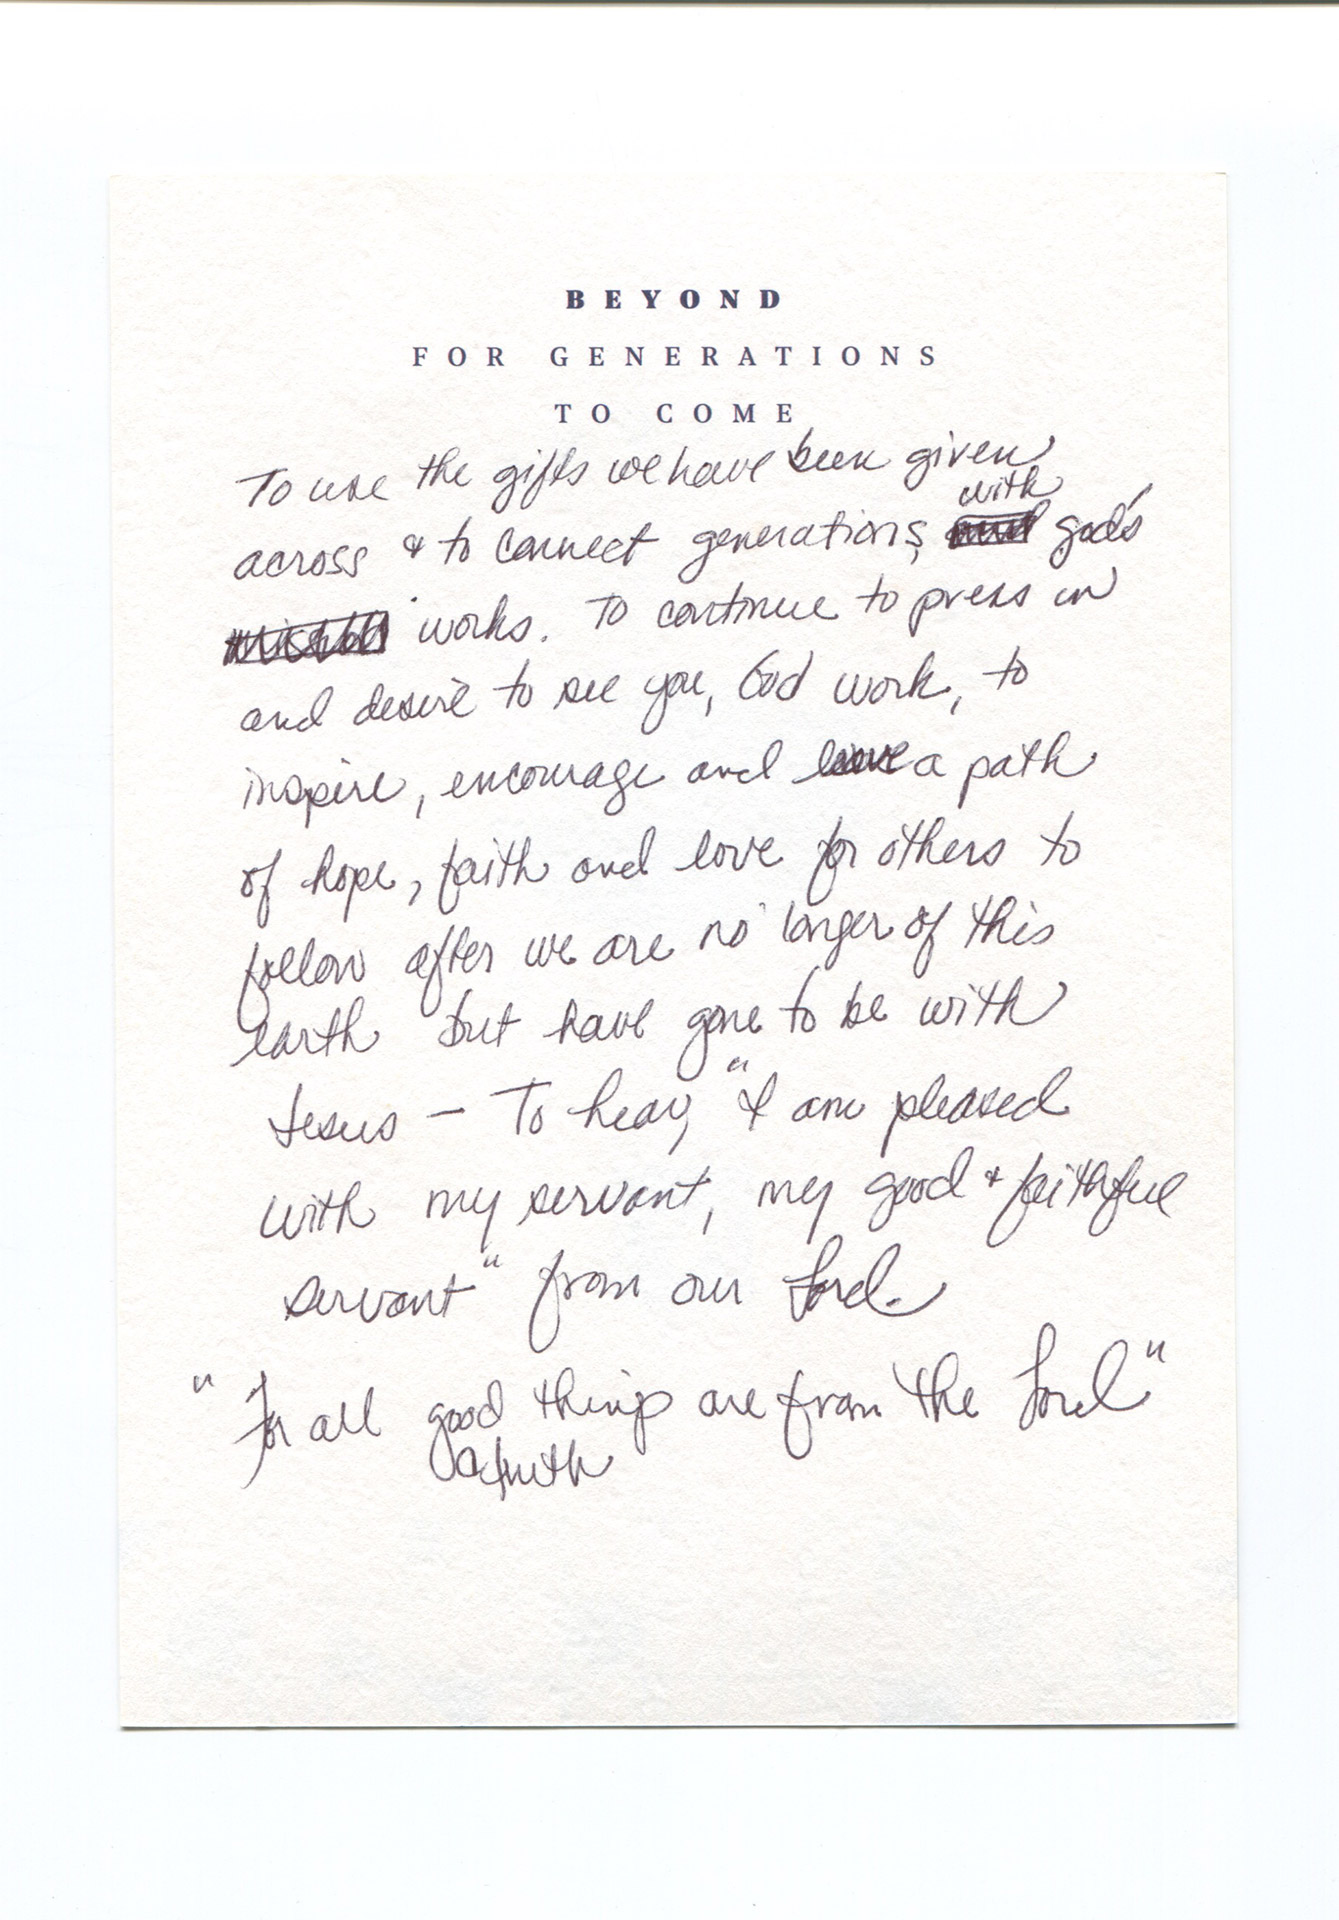 BEYOND
FOR GENERATIONS
TO COME
To use the gifts we have been given
with
across & to connect generations, god's
works. To continue to press in
and desire to see you, God work, to
inspire, encourage and leave a path
of hope, faith and love for others to
follow after we are no longer of this
earth but have gone to be with
Jesus – To hear, "I am pleased
with my servant, my good & faithful
servant" from our Lord.
"For all good things are from the Lord"